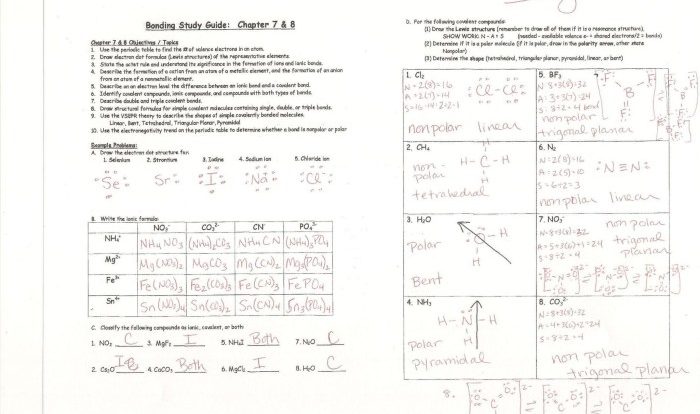 Bonding Study Guide: Chapter 7 & 8
Chapter 7 & 8 Objectives / Topics
1. Use the periodic table to find the # of valence electrons in an atom.
2. Draw electron dot formulas (Lewis structures) of the representative elements.
3. State the octet rule and understand its significance in the formation of ions and ionic bonds.
4. Describe the formation of a cation from an atom of a metallic element, and the formation of an anion
from an atom of a nonmetallic element.
5. Describe on an electron level the difference between an ionic bond and a covalent bond.
6. Identify covalent compounds, ionic compounds, and compounds with both types of bonds.
7. Describe double and triple covalent bonds.
8. Draw structural formulas for simple covalent molecules containing single, double, or triple bonds.
9. Use the VSEPR theory to describe the shapes of simple covalently bonded molecules.
Linear, Bent, Tetrahedral, Triangular Planar, Pyramidal
10. Use the electronegativity trend on the periodic table to determine whether a bond is nonpolar or polar
Example Problems:
A. Draw the electron dot structure for:
1. Selenium 2. Strontium 3. Iodine 4. Sodium ion 5. Chloride ion
Se Sr I Na Cl
B. Write the ionic formula:
NO₃⁻ CO₃²⁻ CN⁻ PO₄³⁻
NH₄⁺ NH₄NO₃ (NH₄)₂CO₃ NH₄CN (NH₄)₃PO₄
Mg²⁺ Mg(NO₃)₂ MgCO₃ Mg(CN)₂ Mg₃(PO₄)₂
Fe³⁺ Fe(NO₃)₃ Fe₂(CO₃)₃ Fe(CN)₃ FePO₄
Sn⁴⁺ Sn(NO₃)₄ Sn(CO₃)₂ Sn(CN)₄ Sn₃(PO₄)₄
C. Classify the following compounds as ionic, covalent, or both
1. NO₂ C 3. MgF₂ I 5. NH₄I Both 7. N₂O C
2. Cs₂O I 4. CaCO₃ Both 6. MgCl₂ I 8. H₂O C
D. For the following covalent compounds:
(1) Draw the Lewis structure (remember to draw all of them if it is a resonance structure).
SHOW WORK: N - A = S (needed - available valence e- = shared electrons/2 = bonds)
(2) Determine if it is a polar molecule (if it is polar, draw in the polarity arrow, other state
Nonpolar)
(3) Determine the shape (tetrahedral, triangular planar, pyramidal, linear, or bent)
1. Cl₂
N=2(8)=16
A=2(7)=14
S=16-14=2÷2=1
Cl-Cl
nonpolar linear
5. BF₃
F B F
F
nonpolar
trigonal planar
2. CH₄
H
H-C-H
H
non-
polar
tetrahedral
6. N₂
N=2(8)=16
A=2(5)=10
S=6÷2=3
N≡N
nonpolar linear
3. H₂O
O-H
H
Polar
Bent
7. NO₃⁻
non polar
trigonal
planar
N=8+3(8)=32
A=5+3(6)+1=24
S=8÷2=4
4. NH₃
H-N-H
H
Polar
Pyramidal
8. CO₃²⁻
N=8+3(8)=32
A=4+3(6)+2=24
S=8÷2=4
non polar
trigonal planar
8.